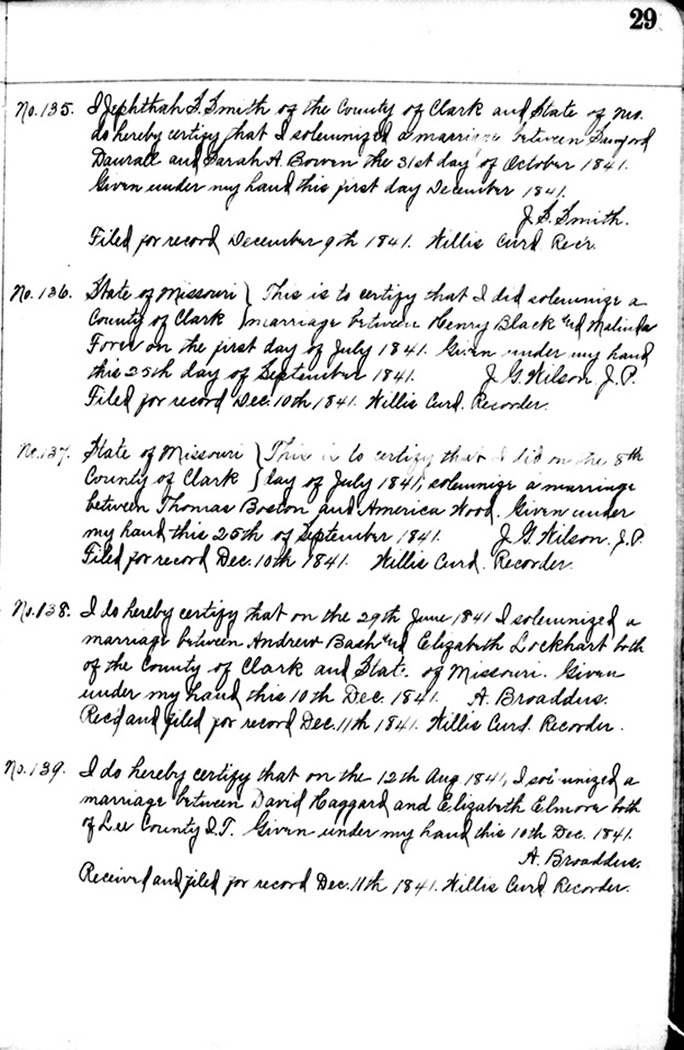 29
No. 135. I Jephthah S. Smith of the County of Clark and State of Mo.
do hereby certify that I solemnized a marriage between
Daurall and Sarah A. Bowen the 31st day of October 1841.
Given under my hand this first day December 1841.
J. S. Smith.
Filed for record December 9th 1841. Willis Curd Rec'r.
No. 136. State of Missouri } This is to certify that I did solemnize a
County of Clark } marriage between Henry Black and Malinda
Forer on the first day of July 1841. Given under my hand
this 25th day of September 1841. J. G. Wilson. J. P.
Filed for record Dec. 10th 1841. Willis Curd. Recorder.
No. 137. State of Missouri } This is to certify that I did on the 8th
County of Clark } day of July 1841, solemnize a marriage
between Thomas Boston and America Wood. Given under
my hand this 25th of September 1841. J. G. Wilson. J. P.
Filed for record Dec. 10th 1841. Willis Curd. Recorder.
No. 138. I do hereby certify that on the 29th June 1841 I solemnized a
marriage between Andrew Bash and Elizabeth Lockhart both
of the County of Clark and State of Missouri. Given
under my hand this 10th Dec. 1841. A. Broaddus.
Rec'd and filed for record Dec. 11th 1841. Willis Curd. Recorder.
No. 139. I do hereby certify that on the 12th Aug 1841, I solemnized a
marriage between David Haggard and Elizabeth Elmore both
of Lee County I. T. Given under my hand this 10th Dec. 1841.
A. Broaddus.
Received and filed for record Dec. 11th 1841. Willis Curd Recorder.